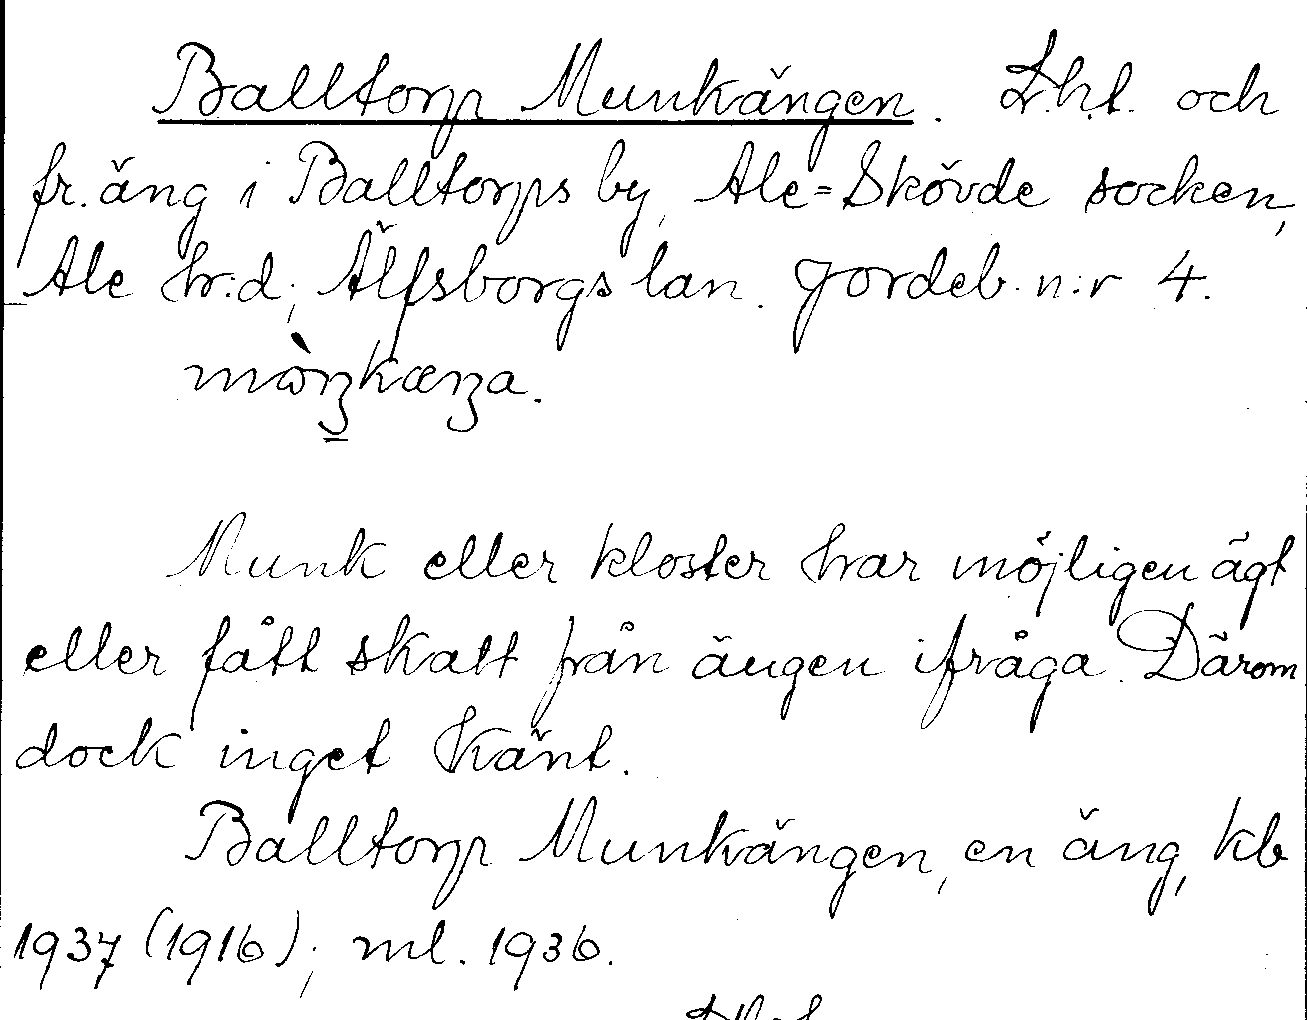 Balltorp Munkängen. L.h.t. och
fr. äng i Balltorps by, Ale-Skövde socken,
Ale hr:d; Älfsborgs lan. Jordeb. n:r 4.
Munk eller kloster har möjligen ägt
eller fått skatt från ängen ifråga. Därom
dock inget känt.
Balltorp Munkängen, en äng, kb
1937 (1916); ml. 1936.